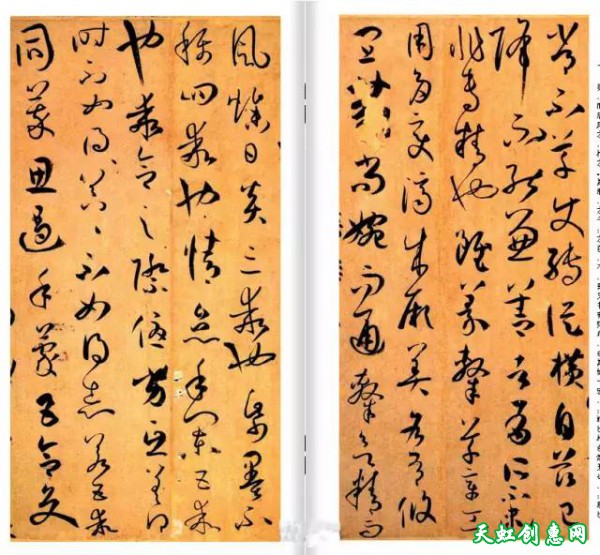 常不草使轉縱橫自茲已
降不能兼善者有所不逮
非專精也雖篆隸草章工
用多變濟成厥美各有攸
宜篆尚婉而通隸欲精而
風燥日炎三乖也紙墨不
稱四乖也情怠手闌五乖
也乖合之際優劣互差得
時不如得器〻不如得志若五乖
同萃思遏手蒙五合交
天虹创惠网